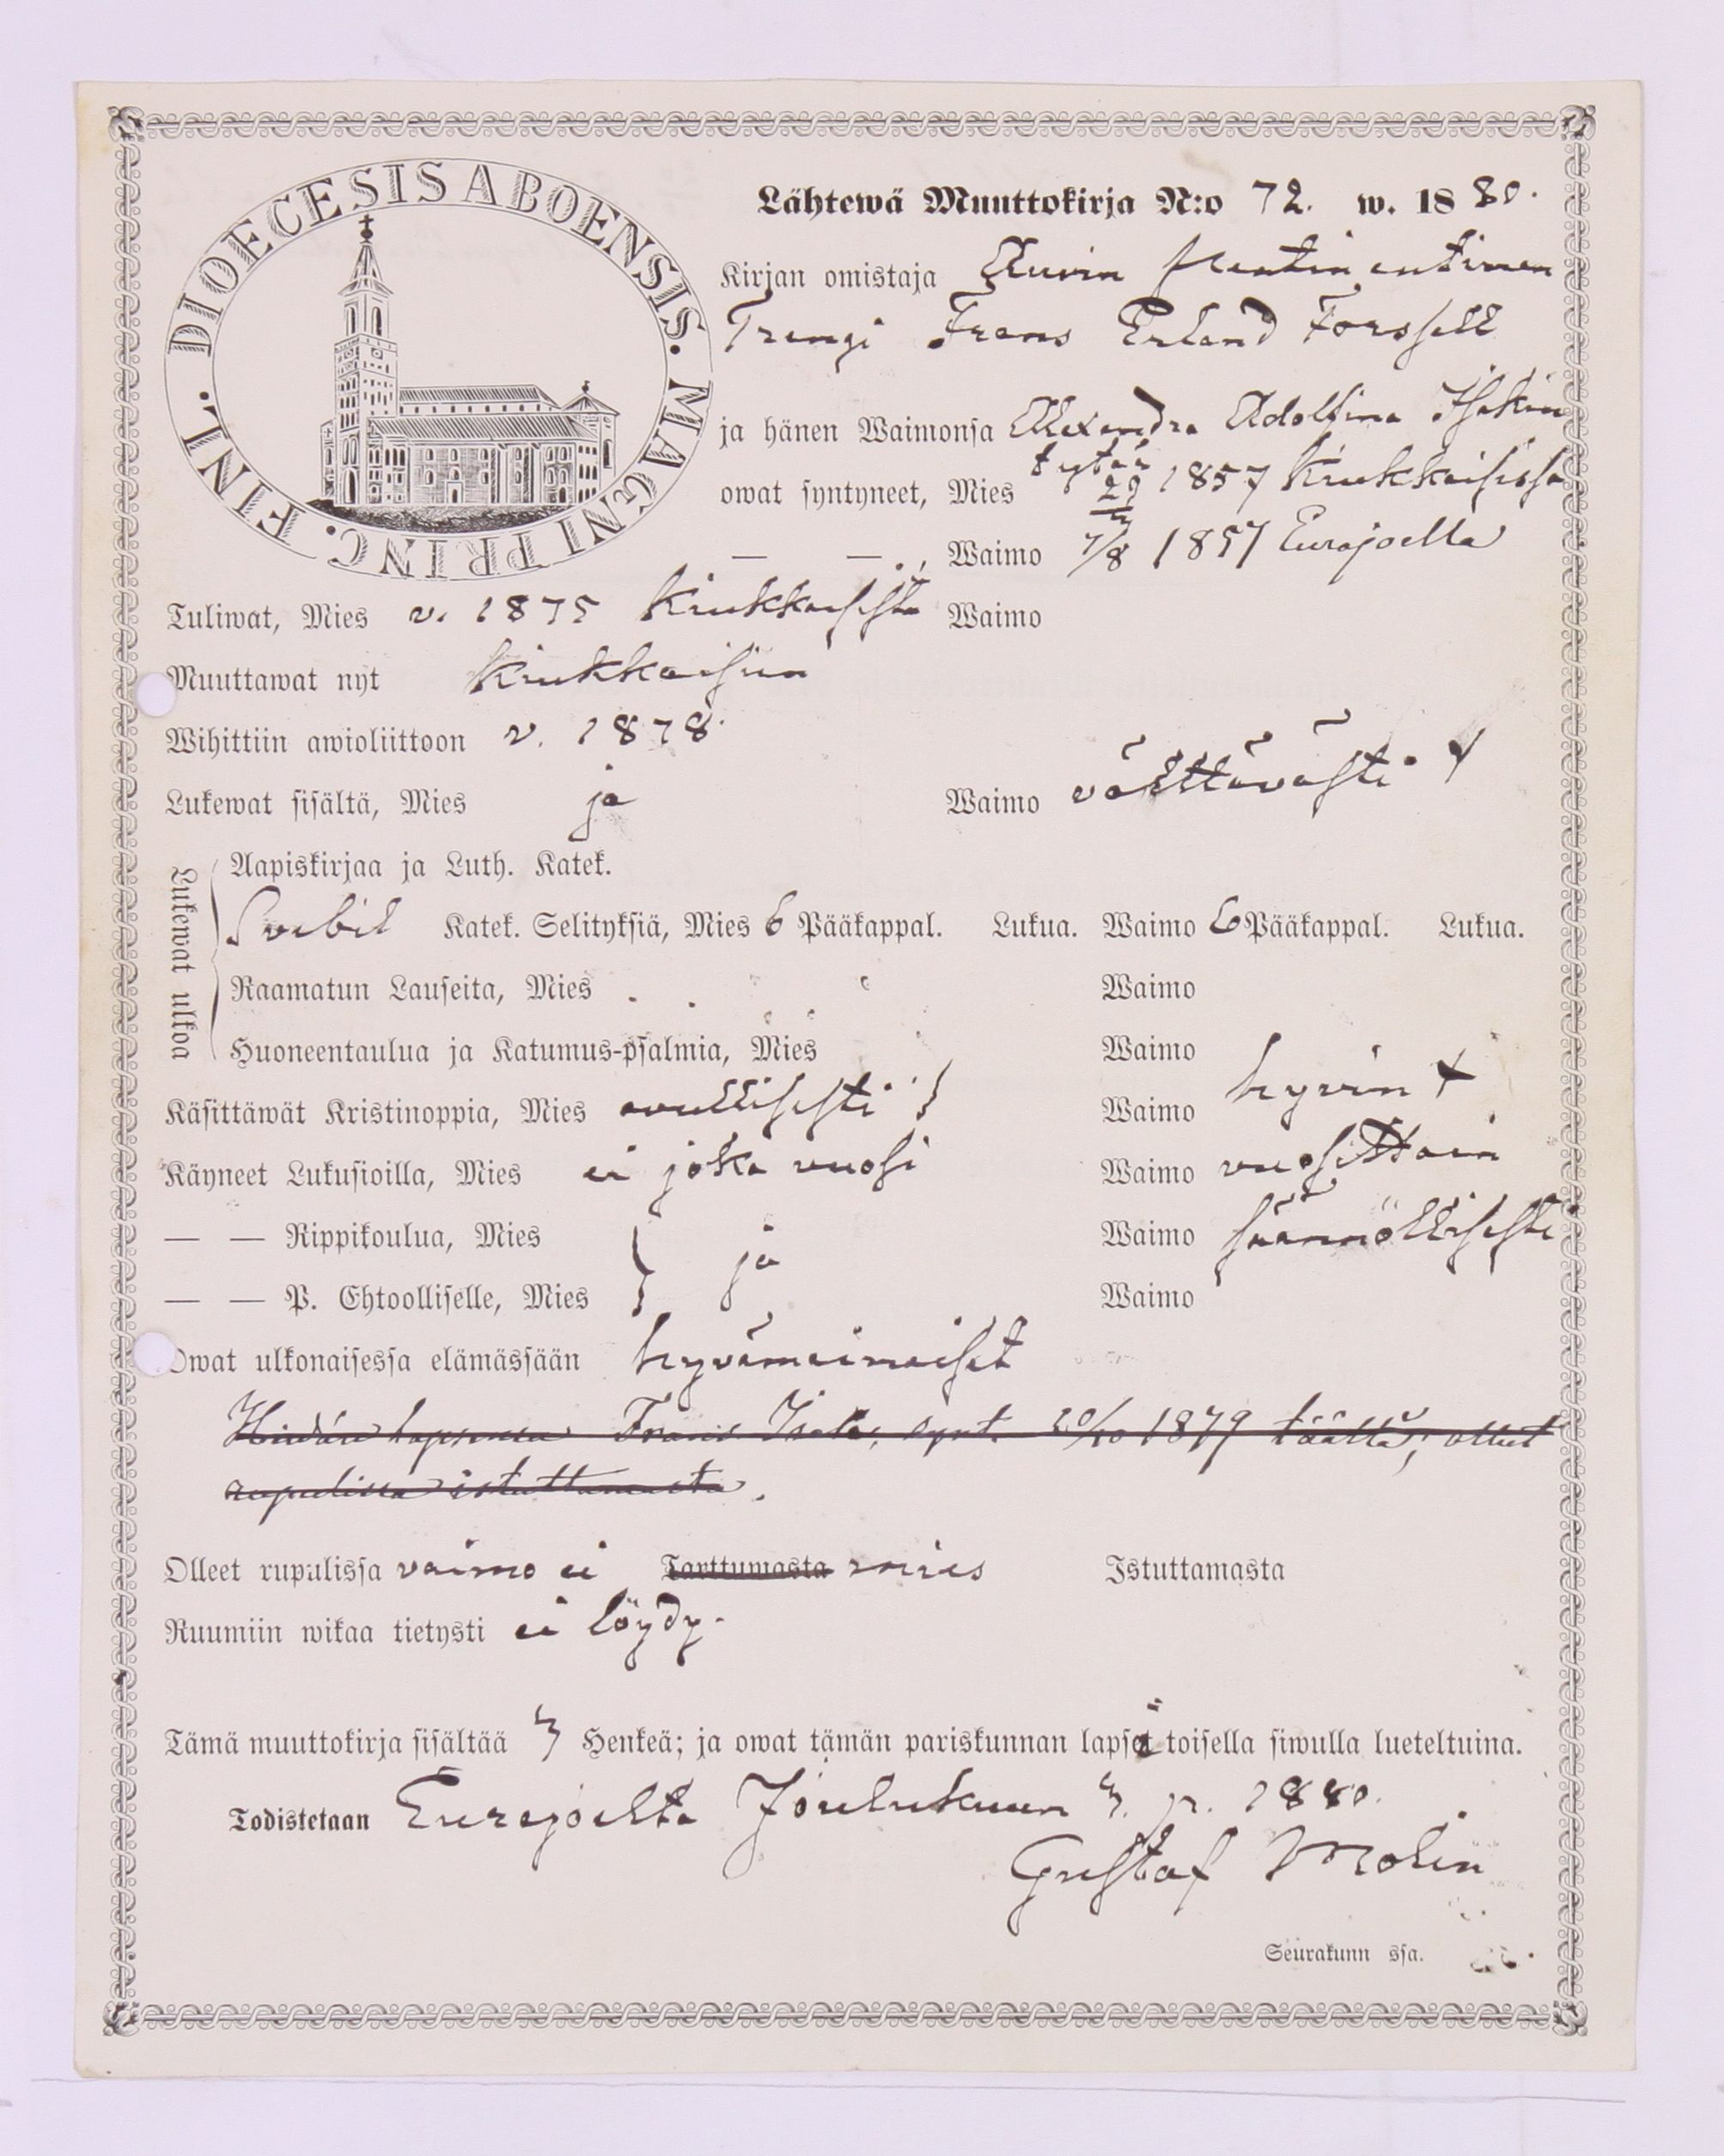 DIOECESIS ABOENSIS. MAGNI PRINC. FINL.
Lähtewä Muuttokirja N:o 72. w. 1880.
Kirjan omistaja entinen
Trengi Frans Erland Forssell
ja hänen Waimonsa Alexandra Adolfina Isakin
tytär
owat syntyneet, Mies 29/3 1857 Kiukkaisissa
— — , Waimo 7/8 1857 Eurajoella
Tuliwat, Mies v. 1875 Kiukkaisista Waimo
Muuttawat nyt Kiukkaisiin
Wihittiin awioliittoon v. 1878.
Lukewat sisältä, Mies ja Waimo välttävästi
Lukewat ulkoa
Aapiskirjaa ja Luth. Katek.
Svebil Katek. Selityksiä, Mies 6 Pääkappal. Lukua. Waimo 6 Pääkappal. Lukua.
Raamatun Lauseita, Mies Waimo
Huoneentaulua ja Katumus-psalmia, Mies Waimo
Käsittäwät Kristinoppia, Mies avullisesti Waimo hyvin
Käyneet Lukusioilla, Mies ei joka vuosi Waimo vuosittain
— — Rippikoulua, Mies ja Waimo säännöllisesti
— — P. Ehtoolliselle, Mies Waimo
Owat ulkonaisessa elämässään hyvämainaiset
Heidän lapsensa Frans Isak, synt. 20/10 1879 täällä; ollut
rupulissa istuttamasta.
Olleet rupulissa vaimo ei Tarttumasta mies Istuttamasta
Ruumiin wikaa tietysti ei löydy.
Tämä muuttokirja sisältää 3 Henkeä; ja owat tämän pariskunnan lapsi toisella siwulla lueteltuina.
Todistetaan Eurajoelta Joulukuun 3. p. 1880.
Gustaf Molin
Seurakunn ssa.